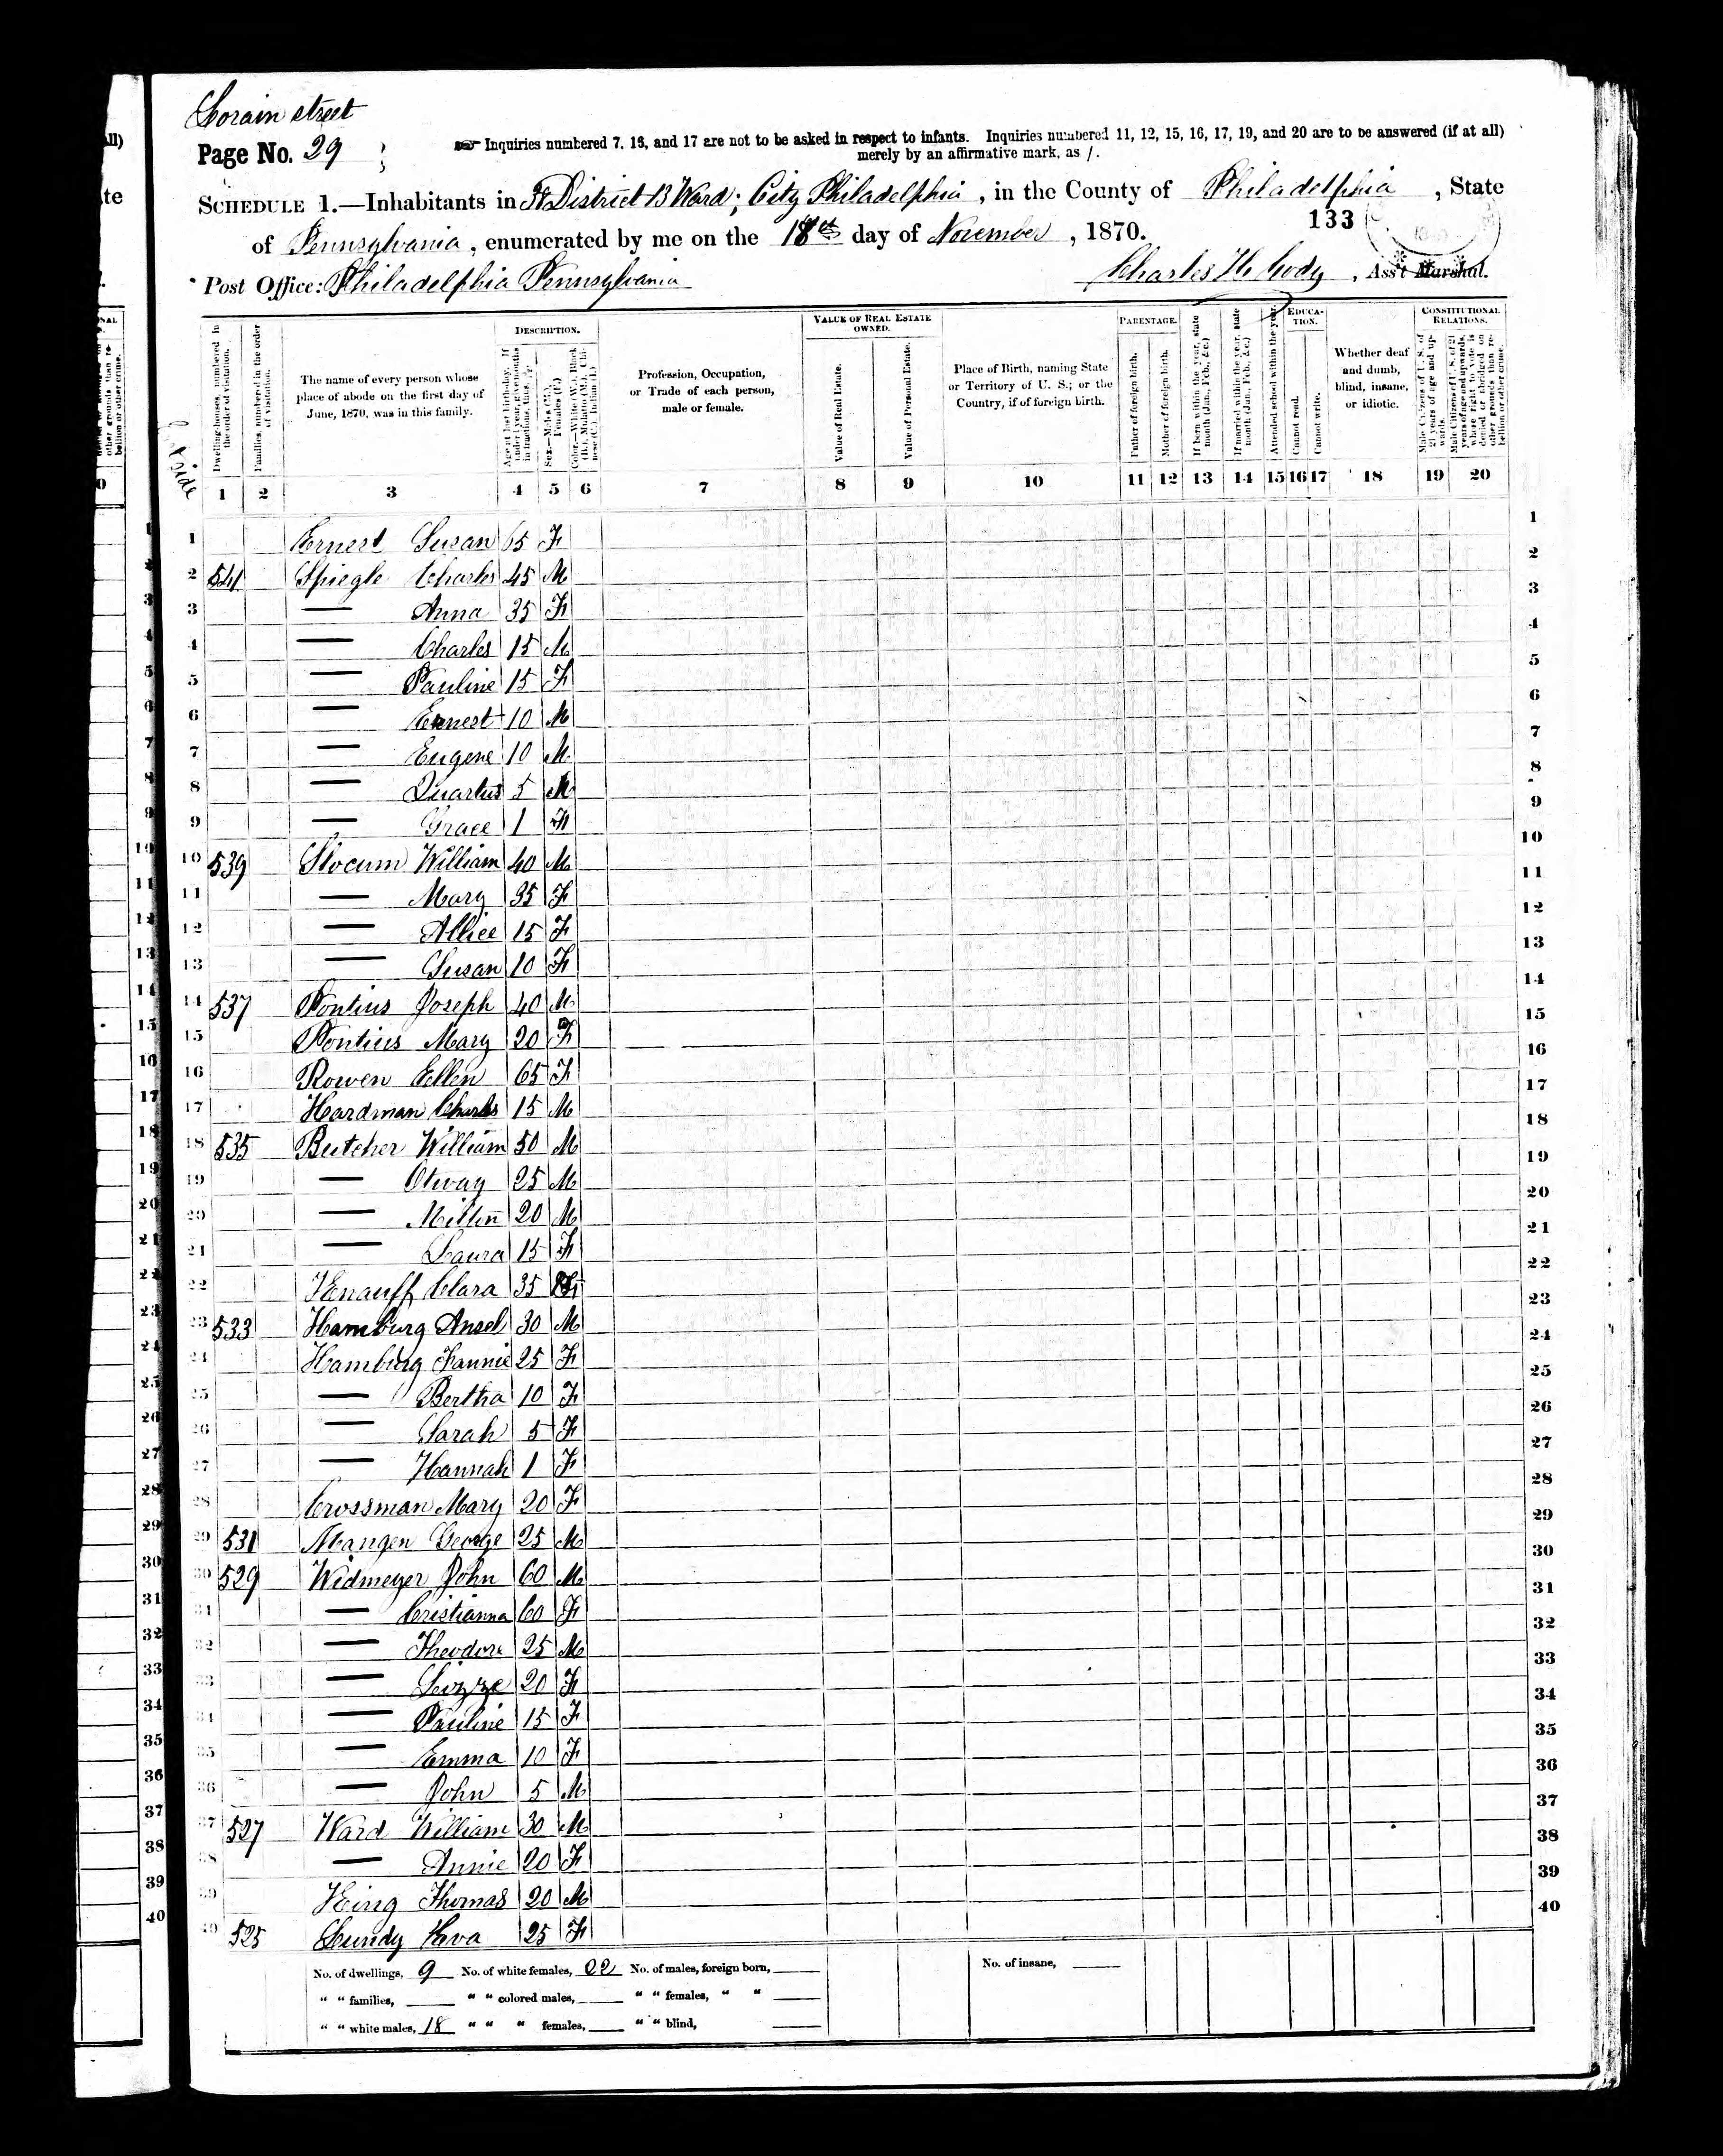 Lorain street
Page No. 29
Inquiries numbered 7, 16, and 17 are not to be asked in respect to infants. Inquiries numbered 11, 12, 15, 16, 17, 19, and 20 are to be answered (if at all)
merely by an affirmative mark, as /.
SCHEDULE 1.—Inhabitants in District 13 Ward; City Philadelphia, in the County of Philadelphia, State
of Pennsylvania, enumerated by me on the 18th day of November, 1870.
133
Post Office: Philadelphia Pennsylvania
Charles H. Cody, Ass't Marshal.
DESCRIPTION.
VALUE OF REAL ESTATE OWNED.
PARENTAGE.
EDUCATION.
CONSTITUTIONAL RELATIONS.
Dwelling-houses, numbered in the order of visitation.
Families, numbered in the order of visitation.
The name of every person whose place of abode on the first day of June, 1870, was in this family.
Age at last birth-day. If under 1 year, give months in fractions, thus, 3/12.
Sex.—Males (M.), Females (F.)
Color.—White (W.), Black (B.), Mulatto (M.), Chinese (C.), Indian (I.)
Profession, Occupation, or Trade of each person, male or female.
Value of Real Estate.
Value of Personal Estate.
Place of Birth, naming State or Territory of U. S.; or the Country, if of foreign birth.
Father of foreign birth.
Mother of foreign birth.
If born within the year, state month (Jan., Feb., &c.)
If married within the year, state month (Jan., Feb., &c.)
Attended school within the year.
Cannot read.
Cannot write.
Whether deaf and dumb, blind, insane, or idiotic.
Male Citizens of U. S. of 21 years of age and upwards.
Male Citizens of U. S. of 21 years of age and upwards, whose right to vote is denied or abridged on other grounds than rebellion or other crime.
1 2 3 4 5 6 7 8 9 10 11 12 13 14 15 16 17 18 19 20
1 Ernest Susan 65 F 1
2 541 Spiegle Charles 45 M 2
3 — Anna 35 F 3
4 — Charles 15 M 4
5 — Pauline 15 F 5
6 — Ernest 10 M 6
7 — Eugene 10 M 7
8 — Quartus 5 M 8
9 — Grace 1 F 9
10 539 Slocum William 40 M 10
11 — Mary 35 F 11
12 — Allice 15 F 12
13 — Susan 10 F 13
14 537 Pontius Joseph 40 M 14
15 Pontius Mary 20 F 15
16 Rowen Ellen 65 F 16
17 Hardman Charles 15 M 17
18 535 Butcher William 50 M 18
19 — Otway 25 M 19
20 — 20 M 20
21 — Laura 15 F 21
22 Knauff Clara 35 F 22
23 533 Hamburg Ansel 30 M 23
24 Hamburg Fannie 25 F 24
25 — Bertha 10 F 25
26 — Sarah 5 F 26
27 — Hannah 1 F 27
28 Crossman Mary 20 F 28
29 531 Mangen George 25 M 29
30 529 Widmeyer John 60 M 30
31 — Cristianna 60 F 31
32 — Theodore 25 M 32
33 — Lizze 20 F 33
34 — Pauline 15 F 34
35 — Emma 10 F 35
36 — John 5 M 36
37 527 Ward William 30 M 37
38 — Annie 20 F 38
39 King Thomas 20 M 39
40 525 Lundy Eva 25 F 40
No. of dwellings, 9 No. of white females, 22 No. of males, foreign born, No. of insane,
" " families, " " colored males, " " females, " "
" " white males, 18 " " " females, " " blind,